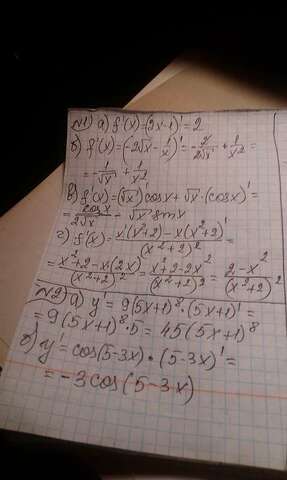 №1) а) f'(x)=(2x-1)'=2
б) f'(x)=(-2√x - 1/x)'=-2/(2√x)+1/x²=
=-1/√x+1/x²
в) f'(x)=(√x)'cosx+√x·(cosx)'=
=cosx/(2√x)-√x sinx
г) f'(x)=(x'(x²+2)-x(x²+2)')/(x²+2)²=
=(x²+2-x(2x))/(x²+2)²=(x²+2-2x²)/(x²+2)²=(2-x²)/(x²+2)²
№2) а) y'=9(5x+1)⁸·(5x+1)'=
=9(5x+1)⁸·5=45(5x+1)⁸
б) y'=cos(5-3x)·(5-3x)'=
=-3cos(5-3x)